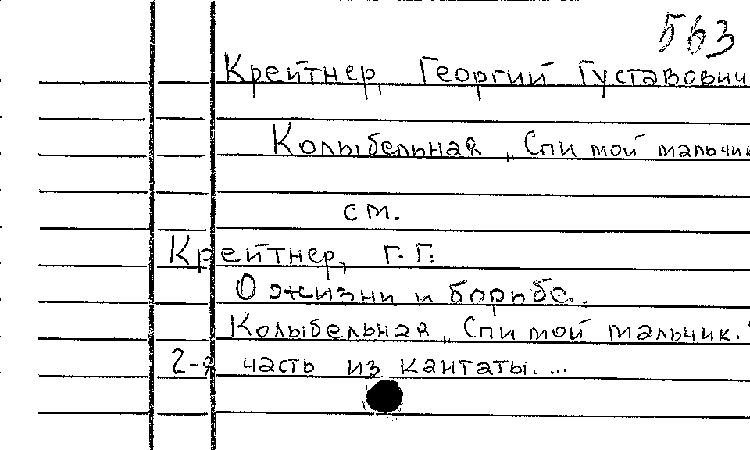 563
Крейтнер, Георгий Густавович
Колыбельная „Спи мой мальчик
см.
Крейтнер, Г. Г.
О жизни и борьбе.
Колыбельная „Спи мой мальчик.“
2-я часть из кантаты. ...